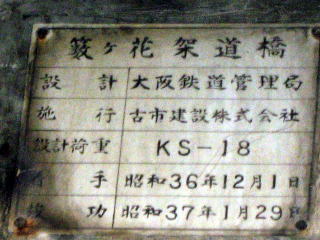 薮ヶ花架道橋
設計 大阪鉄道管理局
施行 古市建設株式会社
設計荷重 KS-18
着手 昭和36年12月1日
竣功 昭和37年1月29日